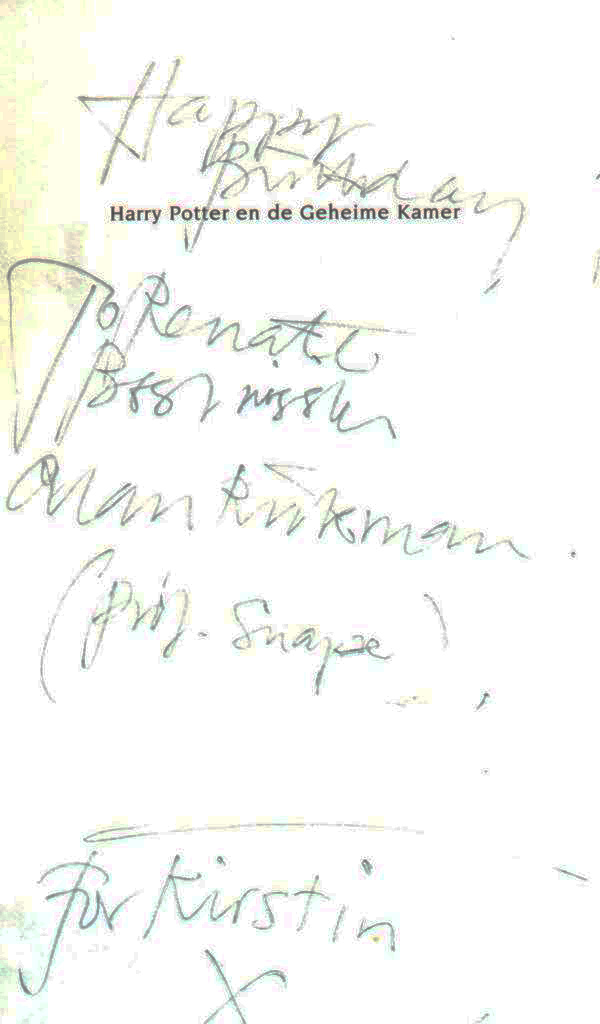 Happy
Birthday
Harry Potter en de Geheime Kamer
To Renate
Best wishes
Alan Rickman
(Prof. Snape)
for Kirstin
X